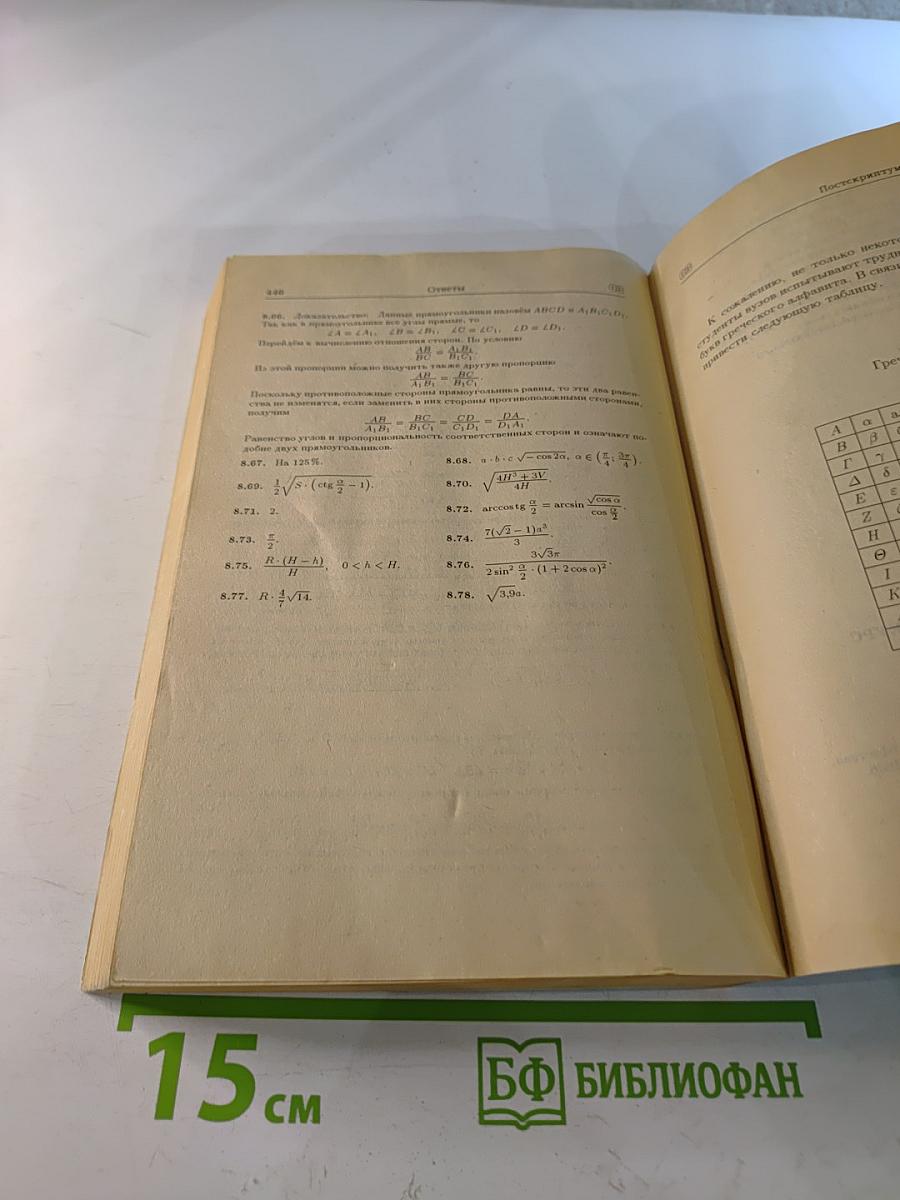 446 Ответы
8.66. Доказательство: Данные прямоугольники назовём ABCD и A₁B₁C₁D₁.
Так как в прямоугольнике все углы прямые, то
∠A = ∠A₁, ∠B = ∠B₁, ∠C = ∠C₁, ∠D = ∠D₁.
Перейдём к вычислению отношения сторон. По условию
AB/BC = A₁B₁/B₁C₁.
Из этой пропорции можно получить также другую пропорцию
AB/A₁B₁ = BC/B₁C₁.
Поскольку противоположные стороны прямоугольника равны, то эти два равен-
ства не изменятся, если заменить в них стороны противоположными сторонами,
получим
AB/A₁B₁ = BC/B₁C₁ = CD/C₁D₁ = DA/D₁A₁.
Равенство углов и пропорциональность соответственных сторон и означают по-
добие двух прямоугольников.
8.67. На 125%. 8.68. a · b · c √(− cos 2α), α ∈ (π/4; 3π/4).
8.69. 1/2 √(S · (ctg α/2 − 1)). 8.70. √((4H³ + 3V)/4H).
8.71. 2. 8.72. arccos tg α/2 = arcsin √(cos α)/cos α/2.
8.73. π/2. 8.74. 7(√2 − 1)a³/3.
8.75. R · (H − h)/H, 0 < h < H. 8.76. 3√3π/(2 sin² α/2 · (1 + 2 cos α)²).
8.77. R · 4/7 √14. 8.78. √3,9a.
Постскриптум
К сожалению, не только некот
студенты вузов испытывают труд
букв греческого алфавита. В связ
привести следующую таблицу.
Гре
A α
B β
Γ γ
Δ δ
E ε
Z
H
Θ
I
K
15 см
БФ БИБЛИОФАН